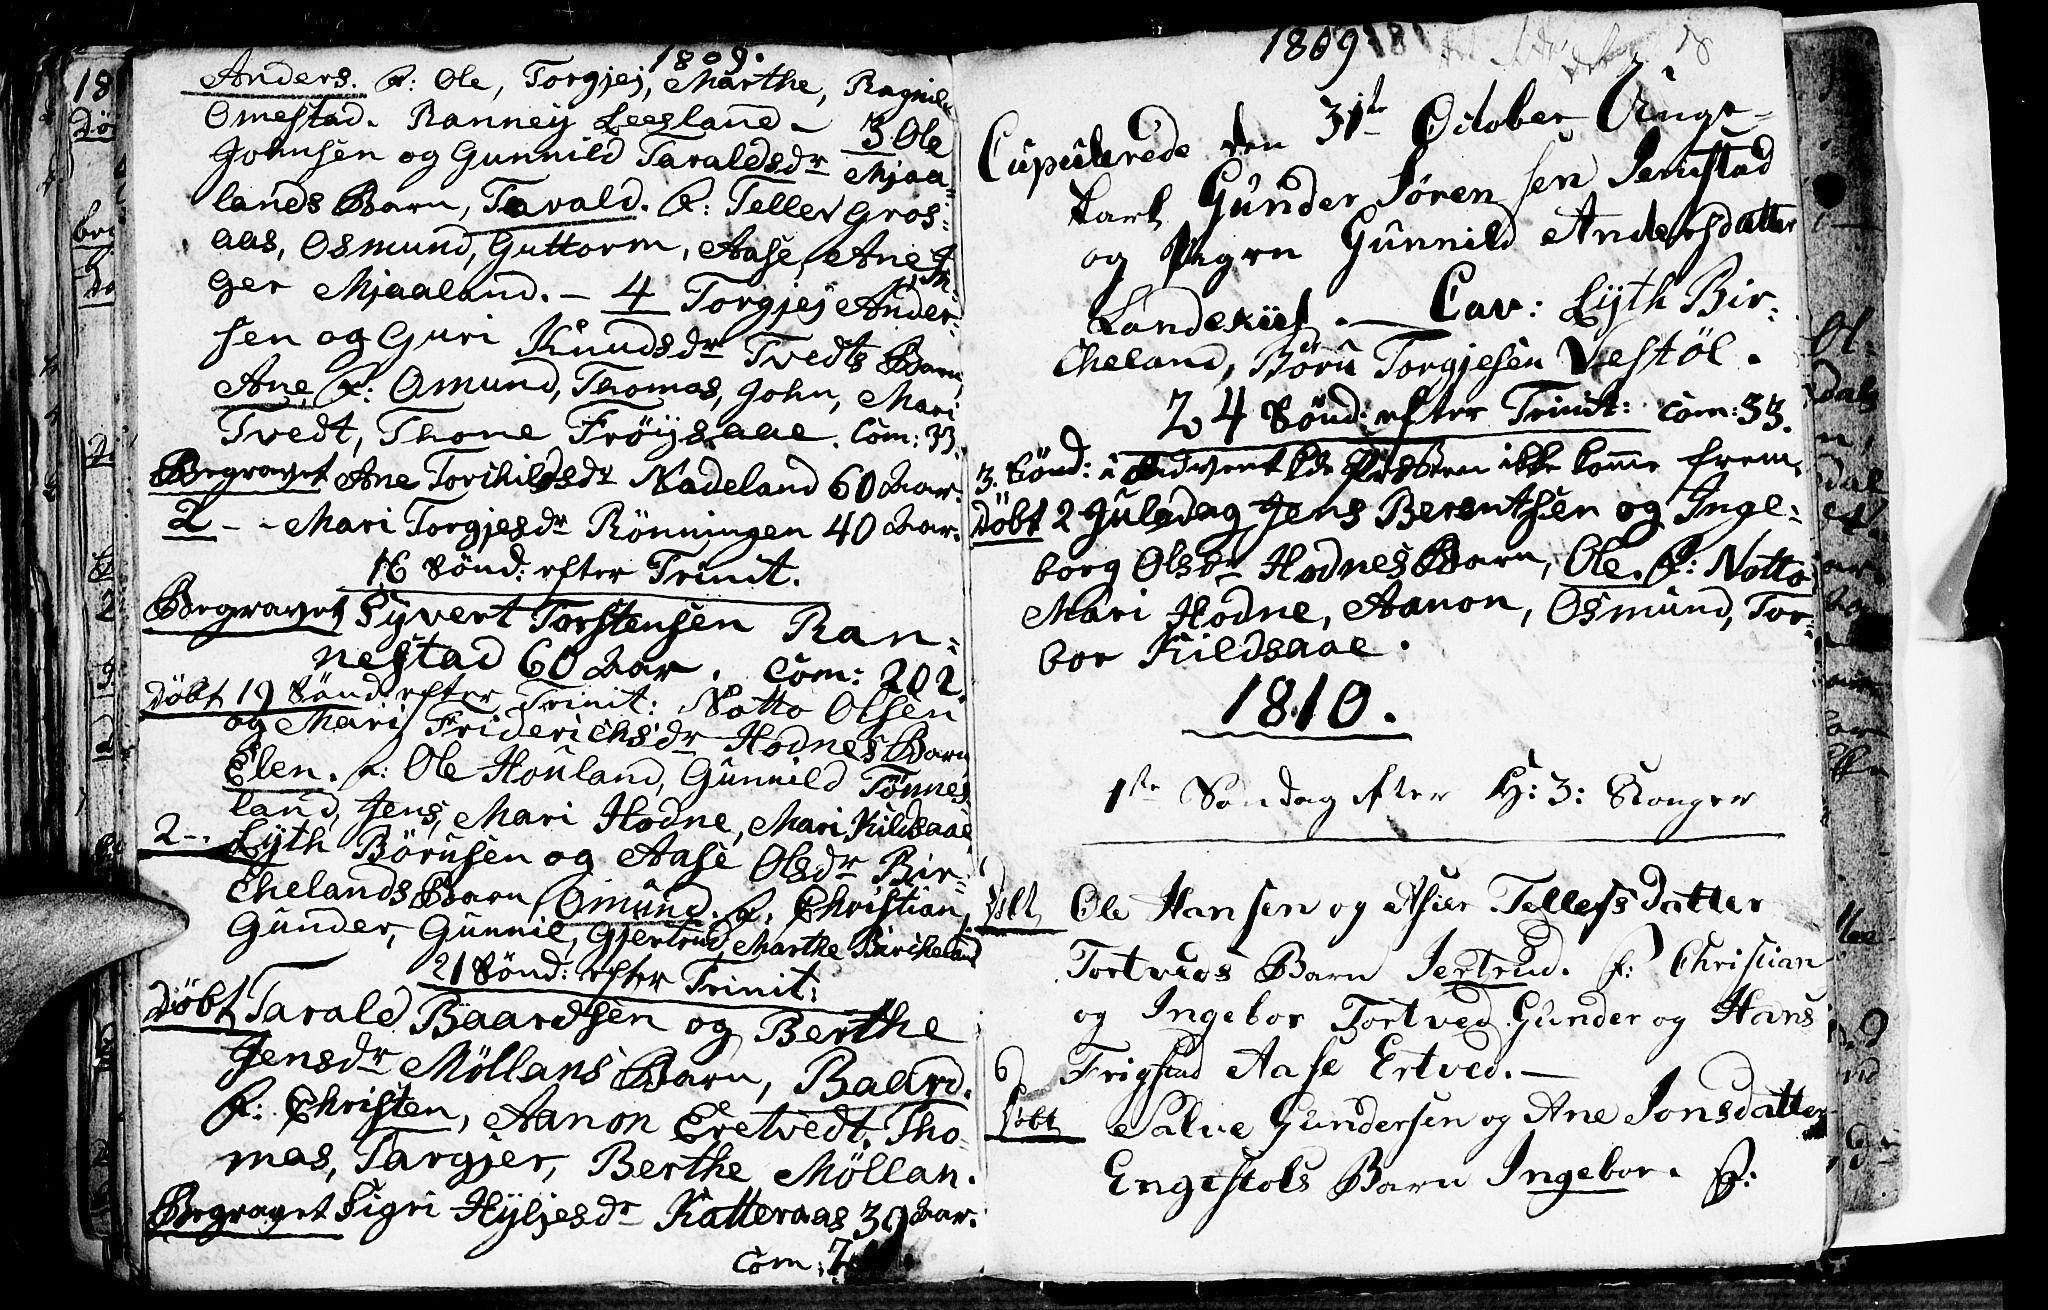 1809.
Anders. F: Ole, Torgjej, Marthe, Ragnild
Omestad. Ranney Leesland. 3 Ole
Johnsen og Gunnild Taraldsdr Mjaa-
lands Barn, Tarald. F: Tellev Gros-
aas, Osmund, Guttorm, Aase, Ane In-
ger Mjaaland. — 4 Torgjej Ander-
sen og Guri Knudsdr Tvedts Barn,
Ane, F: Omund, Thomas, John, Mari
Tvedt, Thone Fröijsaae. Com: 33.
Begravet Ane Torchildsdr Nadeland 60 Aar.
2 - - Mari Torgjesdr Rönningen 40 Aar.
16 Sönd: efter Trinit.
Begravet Syvert Torstensen Ran-
nestad 60 Aar. Com: 202.
Döbt 19 Sönd. efter Trinit: Notto Olsen
og Mari Friderichsdr Hodnes Barn
Elen. F: Ole Houland, Gunnild Tønnes
land, Jens, Mari Hodne, Mari Kildsaae
2 - - Lyth Börusen og Aase Olsdr Bir-
chelands Barn Omund. F. Christian,
Gunder, Gunnil, Gjertrud, Marthe Bircheland
21 Sönd: efter Trinit:
Döbt Tarald Baardsen og Berthe
Jensdr Möllans Barn, Baard.
F: Christen, Aanon Eretvedt, Tho-
mas, Targjer, Berthe Möllan.
Begravet Sigri Hyljesdr Katteraas 39 Aar.
Com:
1809
Cupulerede den 31te October Unge-
karl Gunder Sörensen Jerustad
og Pigen Gunnild Andersdatter
Landekiis. — Cav: Lyth Bir-
cheland, Böru Torgjesen Vestöl.
24 Sönd: efter Trinit: Com: 33.
3. Sönd: i Advent kde Præsten ikke komme frem.
Döbt 2 Juledag Jens Berentsen og Inge-
borg Olsdr Hodnes Barn, Ole. F: Notto
Mari Hodne, Aanon, Osmund, Tor-
bor Kildsaae.
1810.
1ste Søndag efter H: 3: Konger
Døbt Ole Hansen og Asier Tellefsdatter
Tortveds Barn Jertrud. F: Christian
og Ingebor Tortved Gunder og Hans
Frigstad Aase Ertved. —
Døbt Salve Gundersen og Ane Jonsdatter
Engestols Barn Ingebor. F: